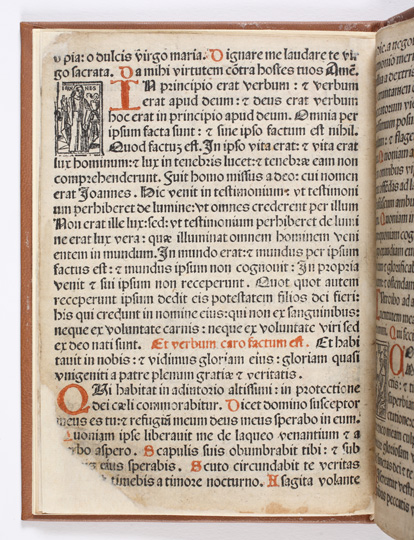 o pia: o dulcis virgo maria. Dignare me laudare te vir
go sacrata. Da mihi virtutem cōtra hostes tuos Amē.
IN principio erat verbum: ⁊ verbum
erat apud deum: ⁊ deus erat verbum
hoc erat in principio apud deum. Omnia per
ipsum facta sunt: ⁊ sine ipso factum est nihil.
Quod factuʒ est. In ipso vita erat: ⁊ vita erat
lux hominum: ⁊ lux in tenebris lucet: ⁊ tenebræ eam non
comprehenderunt. Fuit homo missus a deo: cui nomen
erat Joannes. Hic venit in testimonium: vt testimoni
um perhiberet de lumine: vt omnes crederent per illum
Non erat ille lux: sed: vt testimonium perhiberet de lumi
ne erat lux vera: quæ illuminat omnem hominem veni
entem in mundum. In mundo erat: ⁊ mundus per ipsum
factus est: ⁊ mundus ipsum non cognouit: In propria
venit ⁊ sui ipsum non receperunt. Quot quot autem
receperunt ipsum dedit eis potestatem filios dei fieri:
his qui credunt in nomine eius: qui non ex sanguinibus:
neque ex voluntate carnis: neque ex voluntate viri sed
ex deo nati sunt. Et verbum caro factum est. Et habi
tauit in nobis: ⁊ vidimus gloriam eius: gloriam quasi
vnigeniti a patre plenum gratiæ ⁊ veritatis.
QUi habitat in adiutorio altissimi: in protectione
dei cæli commorabitur. Dicet domino susceptor
meus es tu: ⁊ refugiū meum deus meus sperabo in eum.
Quoniam ipse liberauit me de laqueo venantium ⁊ a
rbo aspero. Scapulis suis obumbrabit tibi: ⁊ sub
eius sperabis. Scuto circundabit te veritas
timebis a timore nocturno. A sagita volante